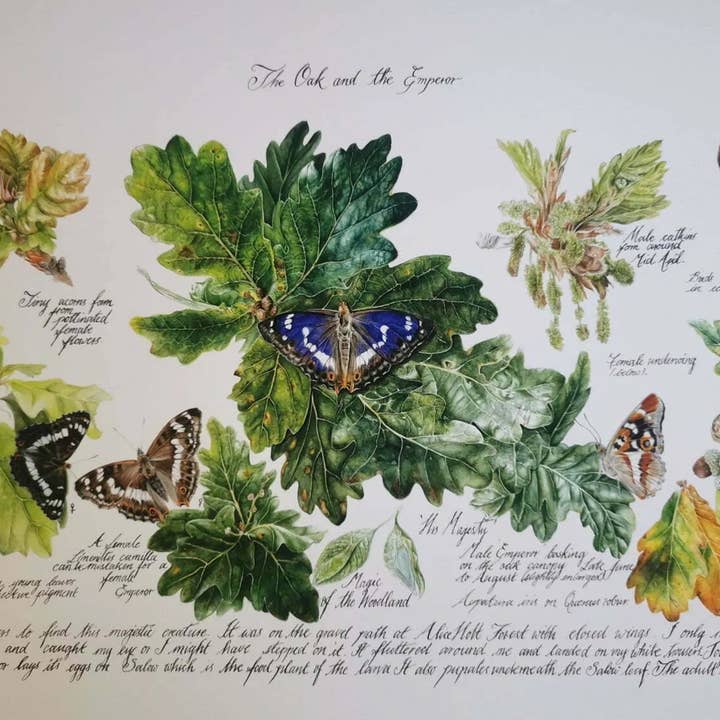 The Oak and the Emperor
Male catkins
form around
Mid April
Tiny acorns form
from
pollinated
female
flowers
Birds
in
Female underwing
(below)
'His Majesty'
Male Emperor basking
on the oak canopy Late June
to August (slightly enlarged)
Apatura iris on Quercus robur
A female
Limenitis camilla
can be mistaken for a
female
Emperor
young leaves
pigment
Magic
of the Woodland
to find this majestic creature. It was on the gravel path at Alice Holt Forest with closed wings. I only
and caught my eye or I might have stepped on it. It fluttered around me and landed on my white trousers.
or lays it's eggs on Salow which is the food plant of the larva It also pupates underneath the Salow leaf. The adult